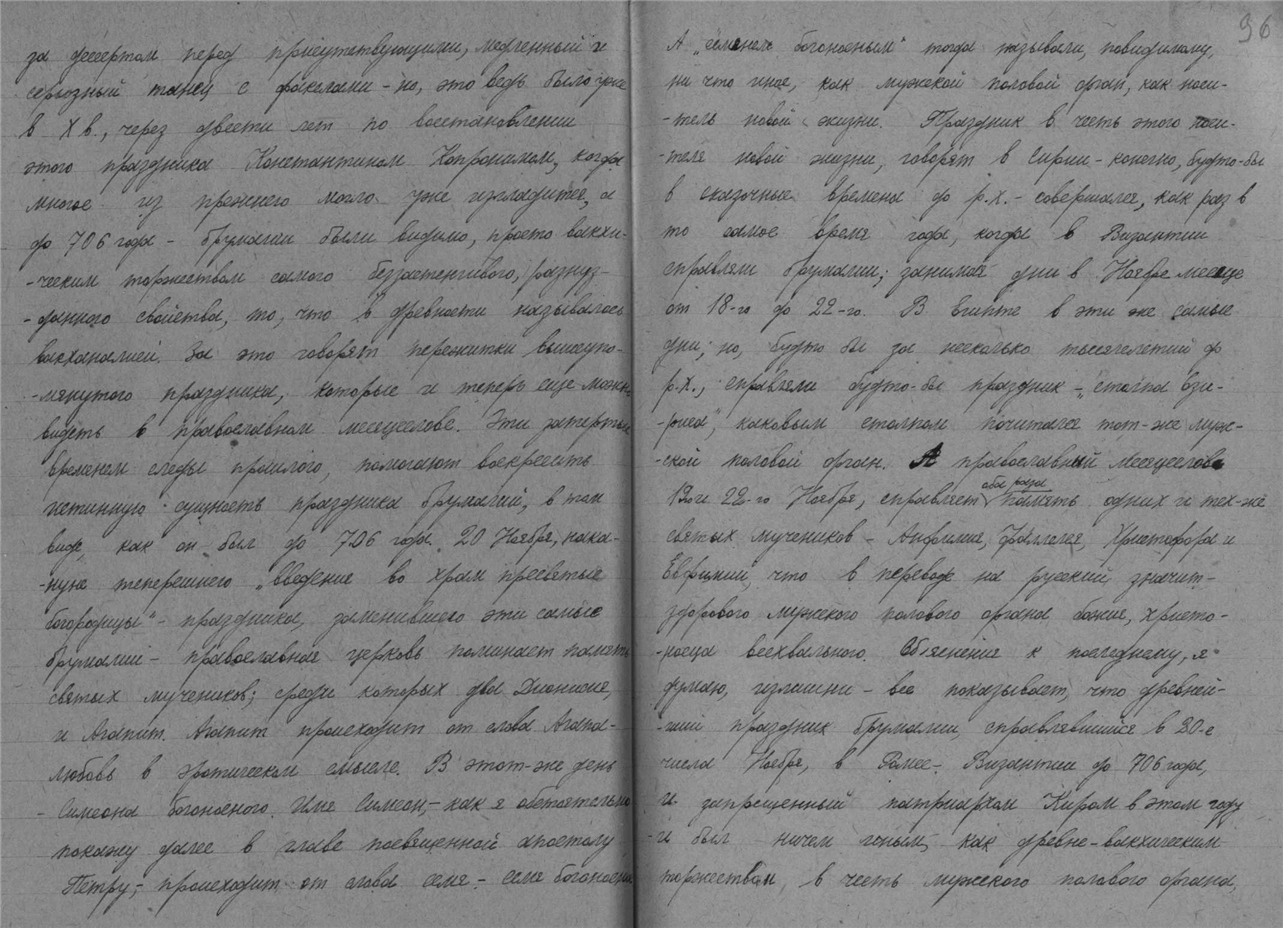 за десертом перед присутствующими, медленный и
серьозный танец с факелами – но, это ведь было уже
в X в., через двести лет по восстановлении
этого праздника Константином Копронимом, когда
многое из прежнего могло уже изгладится, а
до 706 года – брумалии были видимо, просто вакхи-
-ческим торжеством самого беззастенчивого, разнуз-
-данного свойства, то, что в древности называлось
вакханалией. За это говорят пережитки вышеупо-
-мянутого праздника, которые и теперь еще можно
видеть в православном месяцеслове. Эти затертые
временем следы прошлого, помогают воскресить
истинную сущность праздника брумалий, в том
виде, как он был до 706 года. 20 Ноября, нака-
-нуне теперешнего „введение во храм пресвятые
богородицы" – праздника, заменившего эти самые
брумалии – православная церковь поминает память
святых мучеников; среди которых два Дионисия,
и Агапит. Агапит происходит от слова Агапа –
любовь в эротическом смысле. В этот-же день
– Симеона богоносного. Имя Симеон, – как я обстоятельно
покажу далее в главе посвященной апостолу
Петру, – происходит от слова семя – семя богоносное
96
А „семенем богоносным" тогда называли, повидимому,
ни что иное, как мужской половой орган, как носи-
-тель новой жизни. Праздник в честь этого носи-
-теля новой жизни, говорят в Сирии – конечно, будто-бы
в сказочные времена до р.х. – совершался, как раз в
то самое время года, когда в Византии
справляли брумалии; занимая дни в Ноябре месяце
от 18-го до 22-го. В Египте в эти же самые
дни; но, будто бы за несколько тысячелетий до
р.х., справляли будто-бы праздник – „столпа ози-
-риса", каковым столпом почитался тот-же муж-
-ской половой орган. А православный месяцеслов
и 22-го Ноября, справляет оба раза память одних и тех-же
святых мучеников – Анфимия, Фаллалея, Христофора и
Евфимии, что в переводе на русский значит –
здорового мужского полового органа божия, христо-
-носца всехвального. Объяснения к последнему, я
думаю, излишни – все показывает, что древней-
-ший праздник брумалии, справлявшийся в 20-е
числа Ноября, в Ромее – Византии до 706 года,
и запрещенный патриархом Киром в этом году
– и был ничем иным, как древне-вакхическим
торжеством, в честь мужского полового органа,